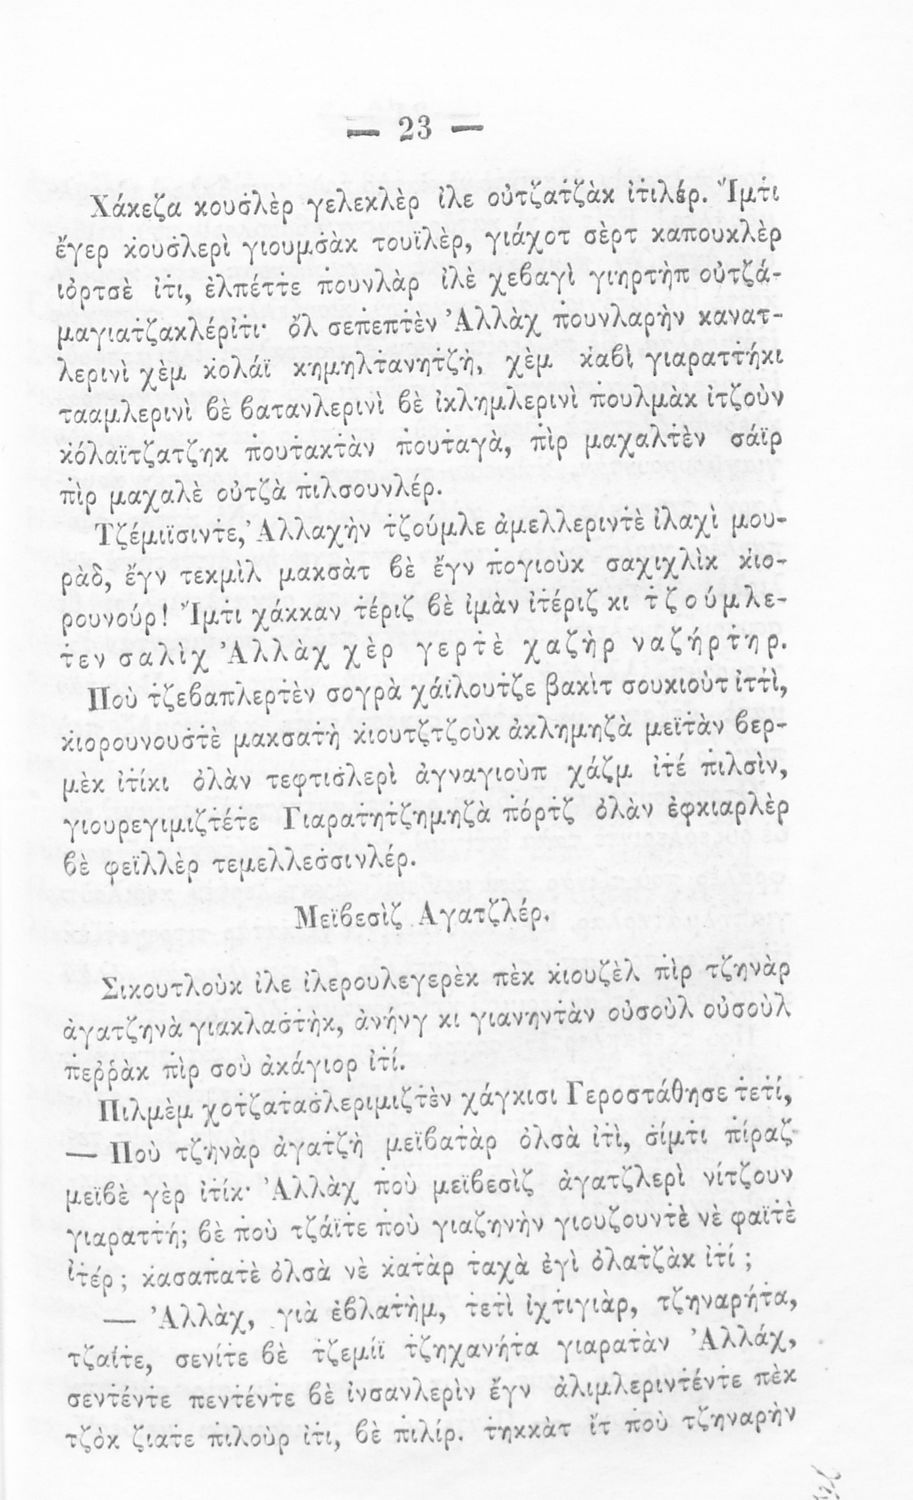 — 23 —
Χάκεζα κουσ̇λὲρ γελεκλὲρ ἰλε οὐτζατζὰκ ἰτιλέρ. Ἴμτι
ἔγερ κουσ̇λερὶ γιουμσ̇ὰκ τουϊλὲρ, γιάχοτ σὲρτ καπουκλὲρ
ἰὀρτσὲ ἰτι, ἐλπέττε π̇ουνλὰρ ἰλὲ χεβαγὶ γιηρτὴπ οὐτζά-
μαγιατζακλέρἰτι· ὄλ σεπεπτὲν Ἀλλὰχ π̇ουνλαρὴν κανατ-
λερινὶ χὲμ κολάϊ κημηλτανητζὴ, χὲμ καβὶ γιαραττήκι
τααμλερινὶ βὲ βατανλερινὶ βὲ ἰκλημλερινὶ π̇ουλμὰκ ἰτζοὺν
κόλαϊτζατζηκ π̇ουτακτὰν π̇ουταγὰ, π̇ὶρ μαχαλτὲν σάϊρ
π̇ὶρ μαχαλὲ οὐτζὰ π̇ιλσουνλέρ.
Τζέμιϊσιντε, Ἀλλαχὴν τζούμλε ἀμελλεριντὲ ἰλαχὶ μου-
ρὰδ, ἔγν τεκμὶλ μακσὰτ βὲ ἔγν π̇ογιοὺκ σαχιχλὶκ κἰο-
ρουνούρ! Ἴμτι χάκκαν τέριζ βὲ ἰμὰν ἰτέριζ κι τζούμλε-
τεν σαλὶχ Ἀλλὰχ χὲρ γερτὲ χαζὴρ ναζήρτηρ.
Π̇οὺ τζεβαπλερτὲν σογρὰ χάϊλουτζε βακὶτ σουκιοὺτ ἰττὶ,
κιορουνουσ̇τὲ μακσατὴ κιουτζτζοὺκ ἀκλημηζὰ μεϊτὰν βερ-
μὲκ ἰτίκι ὀλὰν τεφτισ̇λερὶ ἀγναγιοὺπ χάζμ ἰτέ π̇ιλσὶν,
γιουρεγιμιζτέτε Γιαρατητζημηζὰ π̇όρτζ ὀλὰν ἐφκιαρλὲρ
βὲ φεϊλλὲρ τεμελλεσ̇σινλέρ.
Μεϊβεσὶζ Ἀγατζλέρ.
Σικουτλοὺκ ἰλε ἰλερουλεγερὲκ πὲκ κιουζὲλ π̇ὶρ τζηνὰρ
ἀγατζηνὰ γιακλασ̇τὴκ, ἀνήνγ κι γιανηντὰν οὐσοὺλ οὐσοὺλ
π̇ερῥὰκ π̇ὶρ σοὺ ἀκάγιορ ἰτί.
Π̇ιλμὲμ χοτζατασ̇λεριμιζτὲν χάγκισι Γεροστάθησε τετί,
— Π̇οὺ τζηνὰρ ἀγατζὴ μεϊβατὰρ ὀλσὰ ἰτὶ, σ̇ίμτι π̇ίραζ
μεϊβὲ γὲρ ἰτίκ· Ἀλλὰχ π̇οὺ μεϊβεσὶζ ἀγατζλερὶ νίτζουν
γιαραττή; βὲ π̇οὺ τζάϊτε π̇οὺ γιαζηνὴν γιουζουντὲ νὲ φαϊτὲ
ἰτέρ; κασαπατὲ ὀλσὰ νὲ κατὰρ ταχὰ ἐγὶ ὀλατζὰκ ἰτί;
— Ἀλλὰχ, γιὰ ἐβλατὴμ, τετὶ ἰχτιγιὰρ, τζηναρήτα,
τζαΐτε, σενίτε βὲ τζεμίϊ τζηχανήτα γιαρατὰν Ἀλλάχ,
σεντέντε πεντέντε βὲ ἰνσανλερὶν ἔγν ἀλιμλεριντέντε πὲκ
τζὸκ ζιατε π̇ιλοὺρ ἰτι, βὲ π̇ιλίρ. τηκκὰτ ἴτ π̇οὺ τζηναρὴν